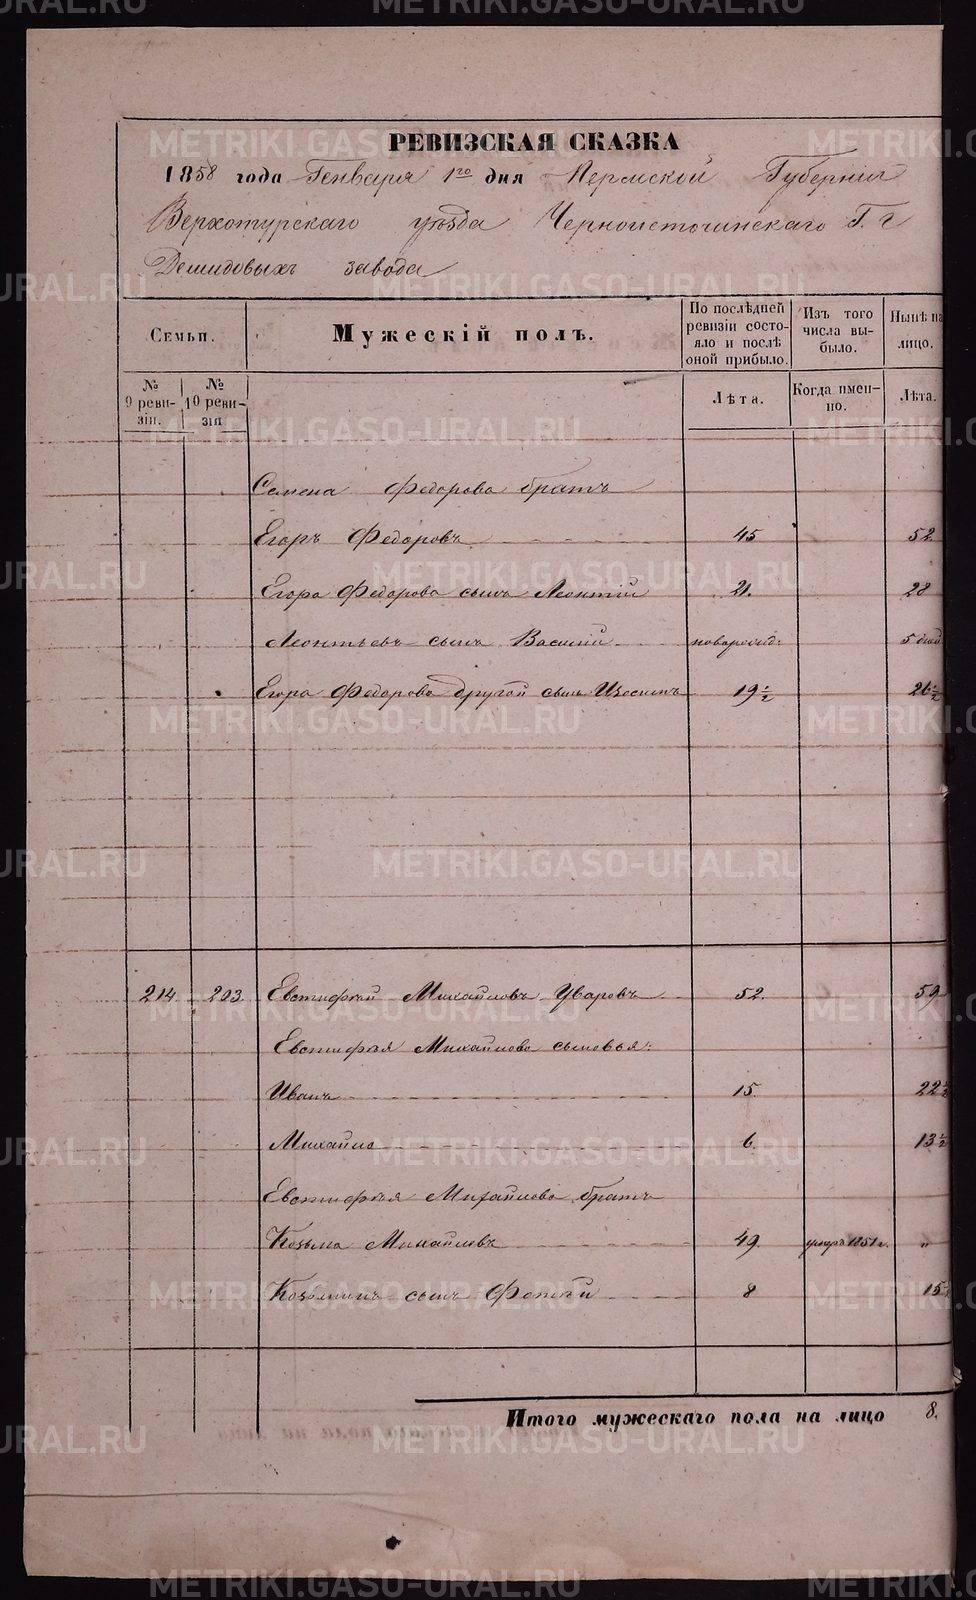 METRIKI.GASO-URAL.RU
РЕВИЗСКАЯ СКАЗКА
1858 года Генваря 1го дня Пермской Губернии
Верхотурскаго уезда Черноисточинскаго Г. г
Демидовыхъ завода
Семьи.
Мужескій полъ.
По послѣдней ревизіи состояло и послѣ оной прибыло.
Изъ того числа выбыло.
Нынѣ на лицо.
№ 9 ревизіи.
№ 10 ревизіи
Лѣта.
Когда именно.
Лѣта.
Семена Федорова братъ
Егоръ Федоровъ 45 52
Егора Федорова сынъ Леонтій 21. 28
Леонтьевъ сынъ Василий новорожд: 5 
Егора Федорова другой сынъ Изосимъ 19 1/2 26 1/2
214. 203. Евстифѣй Михайловъ Уваровъ 52. 59
Евстифѣя Михайлова сыновья:
Иванъ 15. 22 1/2
Михайло 6. 13 1/2
Евстифѣя Михайлова братъ
Козьма Михайловъ 49. умеръ 1851 г. "
Козьминъ сынъ Фотѣй 8 15
Итого мужескаго пола на лицо 8.